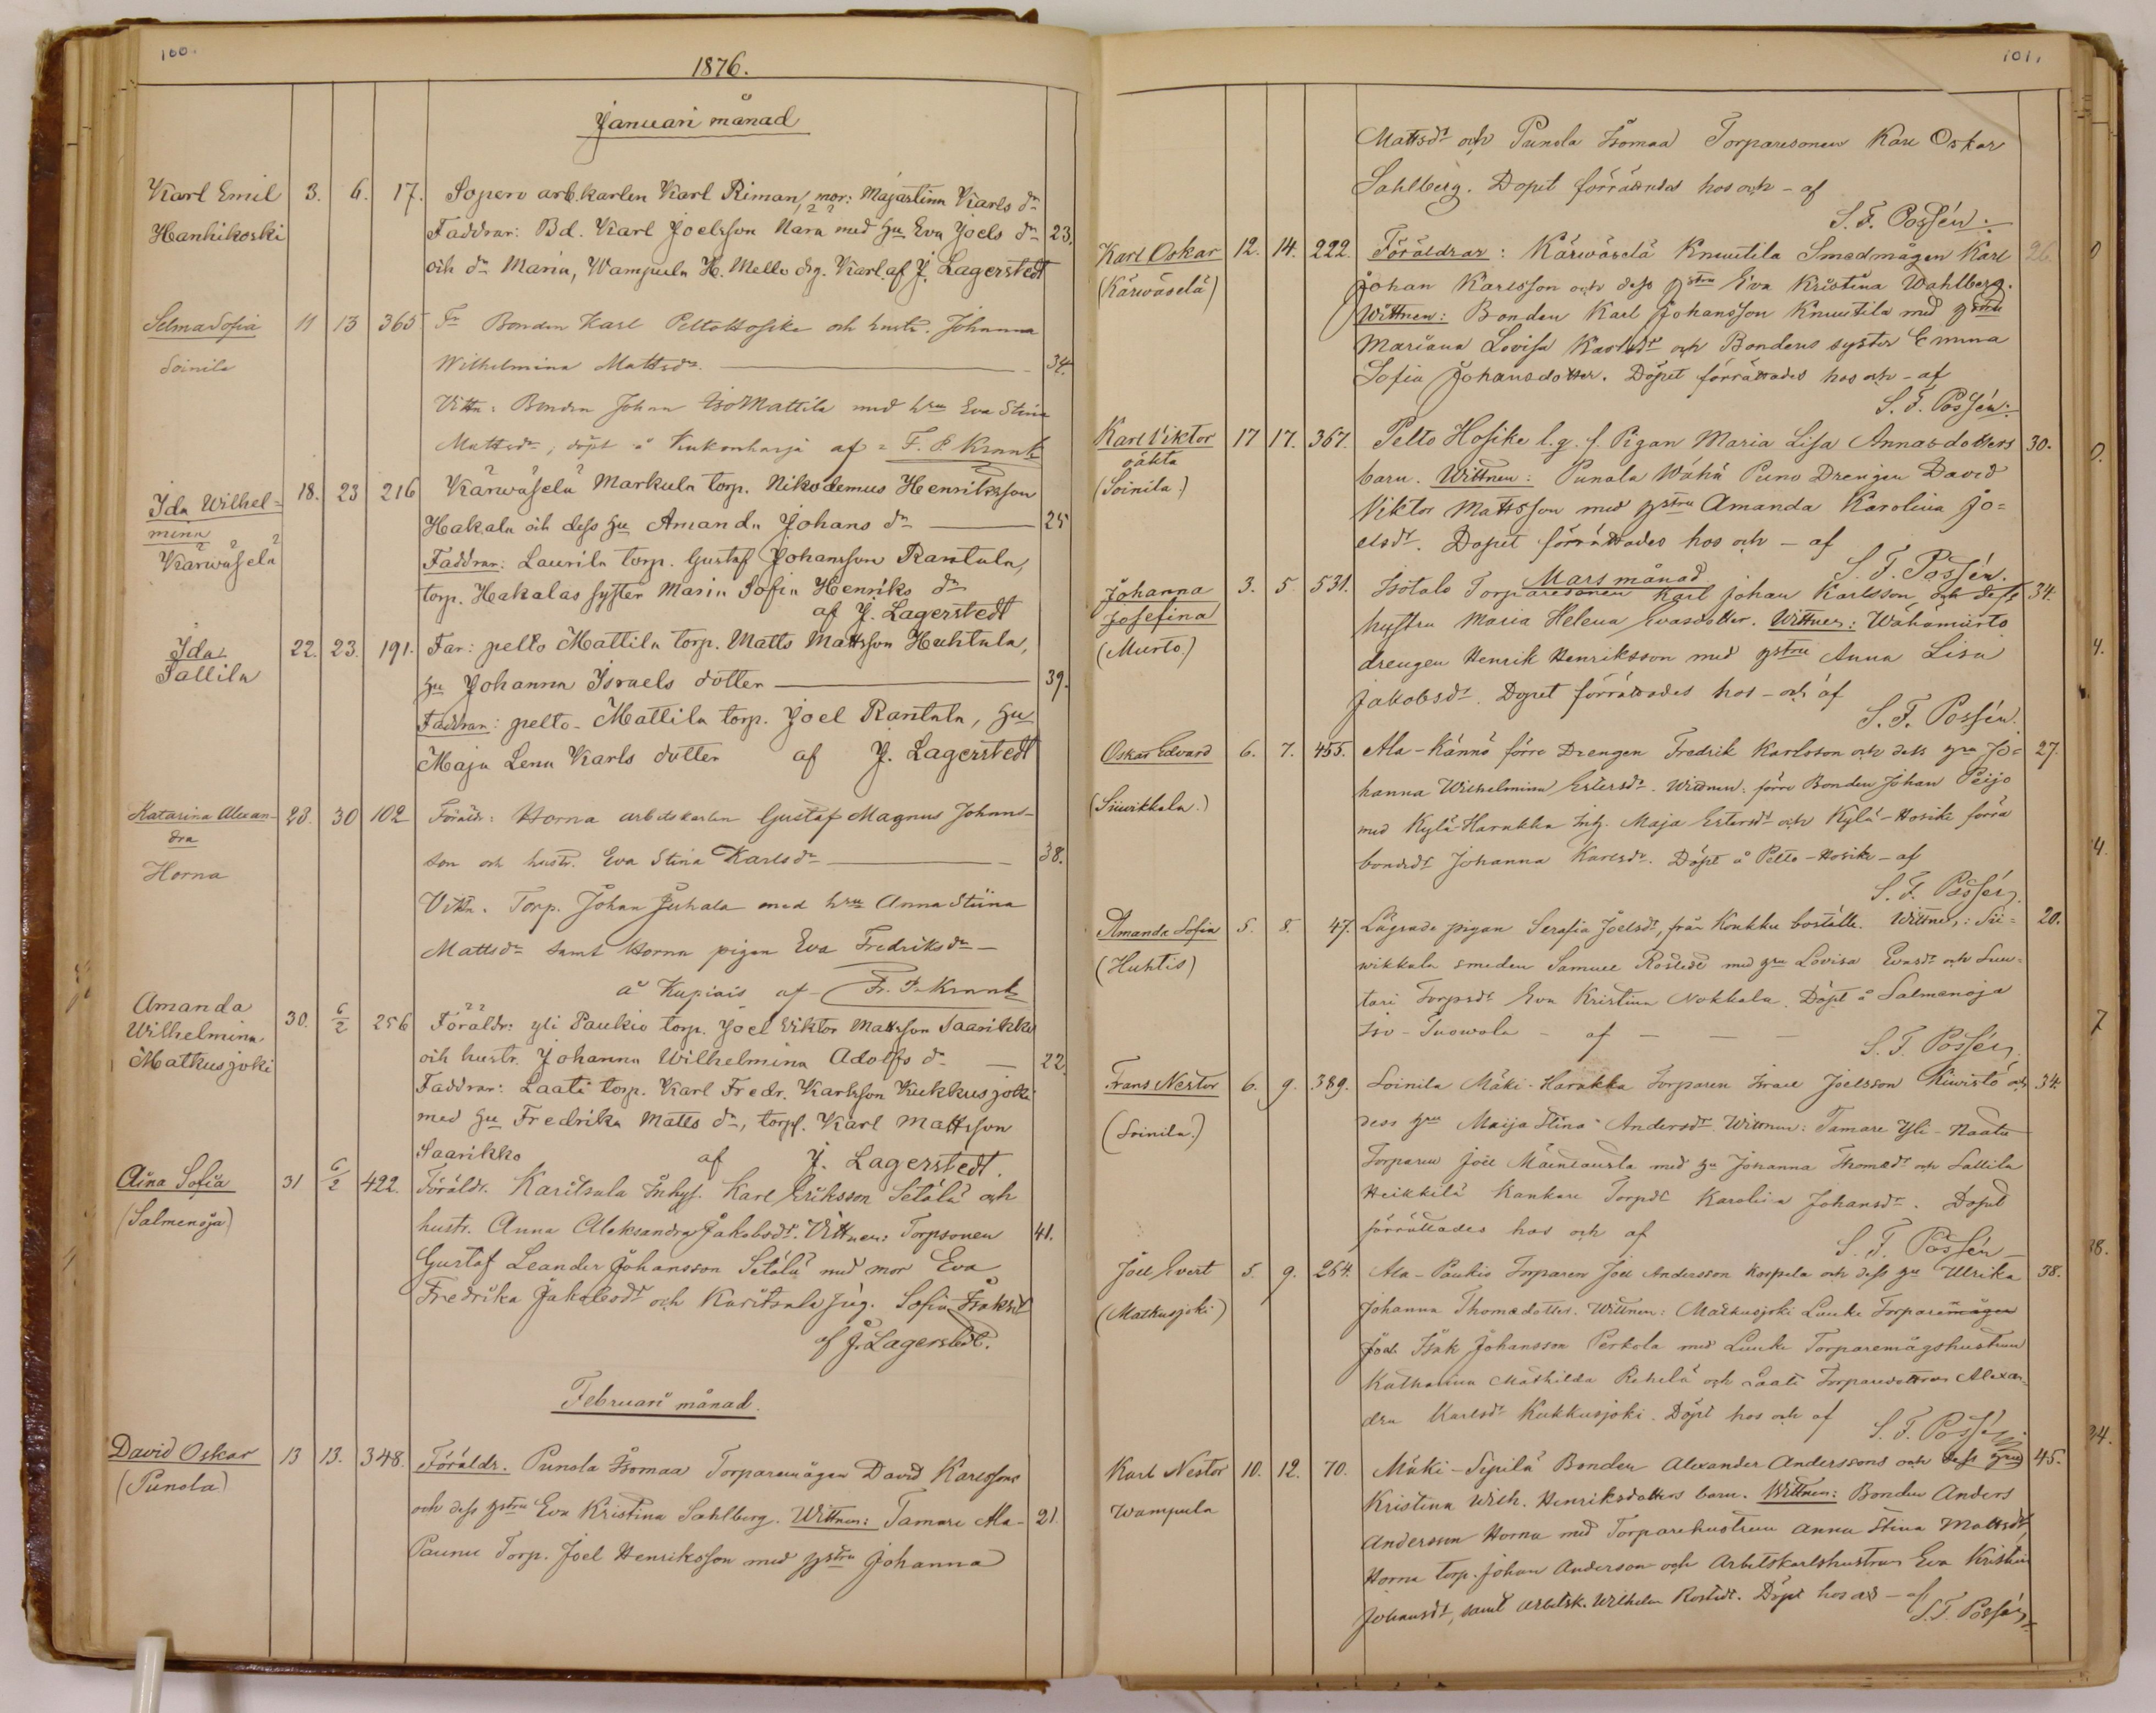 100.
1876.
Januari månad
Karl Emil 3. 6. 17. Sopero arb.karlen Karl Riman, mor: Majastina Karls dr
Hanhikoski Faddrar: Bd. Karl Joelsson Nara med hu Eva Joels dr 23.
och dr Maria, Wampula H. Mello drg. Karl. af J. Lagerstedt
Selma Sofia 11 13 365 Fr Bonden Karl Pelto Hosike och hustr. Johanna
Soinila Wilhelmina Mattsdr. 34.
Vittn: Bonden Johan Iso Mattila med hru Eva Stina
Mattsdr; döpt å Kukonharja af = F. F. Krank
Ida Wilhel= 18. 23 216 Karwäselä Markula torp. Nikodemus Henriksson
mina Hakala och dess hu Amanda Johans dr 25
Karwäselä Faddrar: Laurila torp. Gustaf Johansson Rantala,
torp. Hakalas syster Maria Sofia Henriks dr
af J. Lagerstedt
Ida 22. 23. 191. Far: pelto Mattila torp. Matts Mattsson Huhtala,
Sallila hu Johanna Israels dotter 39.
Faddrar: pelto-Mattila torp. Joel Rantala, hu
Maja Lena Karls dotter af J. Lagerstedt
Katarina Alexan- 28. 30 102 Föräldr: Horna arbetskarlen Gustaf Magnus Johans-
dra son och hustr. Eva Stina Karlsdr 38.
Horna
Vittn. Torp. Johan Juhala med hru Anna Stina
Mattsdr samt Horna pigan Eva Fredriksdr —
å Kupiais af Fr. F. Krank
Amanda 30. 6/2 256 Föräldr: yli Paukio torp. Joel Viktor Mattsson Saarikko
Wilhelmina och hustr. Johanna Wilhelmina Adolfs dr — 22.
Matkusjoki Faddrar: Laati torp. Karl Fredr. Karlsson Kukkusjoki
med hu Fredrika Matts dr, torps. Karl Mattsson
Saarikko af J. Lagerstedt.
Aina Sofia 31 6/2 422. Föräldr. Karitsala Inhys. Karl Eriksson Setälä och
(Salmenoja) hustr. Anna Aleksandra Jakobsdr. Vittnen: Torpsonen 41.
Gustaf Leander Johansson Setälä med mor Eva
Fredrika Jakobsdr och Karitsala pig. Sofia Isaksdr
af J. Lagerstedt.
Februari månad.
David Oskar 13 13. 348. Föräldr. Punola Isomaa Torparemågen David Karlsson
(Punola) och dess hstru Eva Kristina Sahlberg. Wittnen: Tamare Ala- 21.
Paunu Torp. Joel Henriksson med hstru Johanna
101.
Mattsdr och Punola Isomaa Torparesonen Karl Oskar
Sahlberg. Dopet förrättades hos och – af
S. F. Possén.
Karl Oskar 12. 14. 222. Föräldrar: Kärwäselä Knuutila Smedmågen Karl 26.
(Kärwäselä) Johan Karlsson och dess hstru Eva Kristina Wahlberg.
Wittnen: Bonden Karl Johansson Knuutila med hstru
Mariana Lovisa Karlsdr och Bondens syster Emma
Sofia Johansdotter. Döpet förrättades hos och – af
S. F. Possén.
Karl Viktor 17 17. 367. Pelto Hosike l.g. f. Pigan Maria Lisa Annasdotters 30.
oäkta barn. Wittnen: Punola Wähä Puno Drengen David
(Soinila) Viktor Mattsson med hstru Amanda Karolina Jo=
elsdr. Dopet förrättades hos och – af
S. F. Possén.
Mars månad
Johanna 3. 5 531. Isotalo Torparesonen Karl Johan Karlsson och dess 34.
Josefina hustru Maria Helena Evasdotter. Wittnen: Wähämurto
(Murto) drengen Henrik Henriksson med hstru Anna Lisa
Jakobsdr. Dopet förrättades hos – och af
S. F. Possén.
Oskar Edvard 6. 7. 455. Ala-Kännö förre Drengen Fredrik Karlsson och dess hru Jo= 27.
(Siwikkala.) hanna Wilhelmina Estersdr. Wittnen: förre Bonden Johan Peijo
med Kylä-Harakka Inh. Maja Estersdr och Kylä-Hosike förra
bondsdr Johanna Karlsdr. Döpt å Pelto-Hosike – af
S. F. Possén
Amanda Sofia 5. 8. 47. Lägrade pigan Serafia Joelsdr, från Konkku boställe. Wittnen: Sii= 20.
(Huhtis) wikkala smeden Samuel Rostedt med hru Lovisa Evasdr och Luu=
tari Torpsdr Eva Kristina Nokkala. Döpt å Salmenoja
Iso-Tuowola – af – – –
S. F. Possén
Frans Nestor 6. 9. 389. Soinila Mäki-Harakka Torparen Israel Joelsson Kiwistö och 34.
(Soinila.) dess hru Maija Stina Andersdr. Wittnen: Tamare Yli-Naatu
Torparen Joel Mäentausta med hu Johanna Thomasdr och Sallila
Heikkilä Kankare Torpdr Karolina Johansdr. Dopet
förrättades hos och af
S. F. Possén
Joel Evert 5. 9. 264. Ala-Paukio Torparen Joel Andersson Kospela och dess hu Ulrika 38.
(Matkusjoki) Johanna Thomasdotter. Wittnen: Matkusjoki Luuke Torparemågen
Joel Isak Johansson Perkola med Luuke Torparemågshustrun
Katharina Mathilda Rekelä och Laati Torparedottren Alexan=
dra Karlsdr Kukkusjoki. Döpt hos och af
S. F. Possén
Karl Nestor 10. 12. 70. Mäki-Sipilä Bonden Alexander Anderssons och dess hru 45.
Wampula Kristina Wilh. Henriksdotters barn. Wittnen: Bonden Anders
Andersson Horna med Torparehustrun Anna Stina Mattsdr,
Horna torp. Johan Anderson och Arbetskarlshustrun Eva Kristina
Johansdr, samt Arbetsk. Wilhelm Rostedt. Döpt hos och – af
S. F. Possén